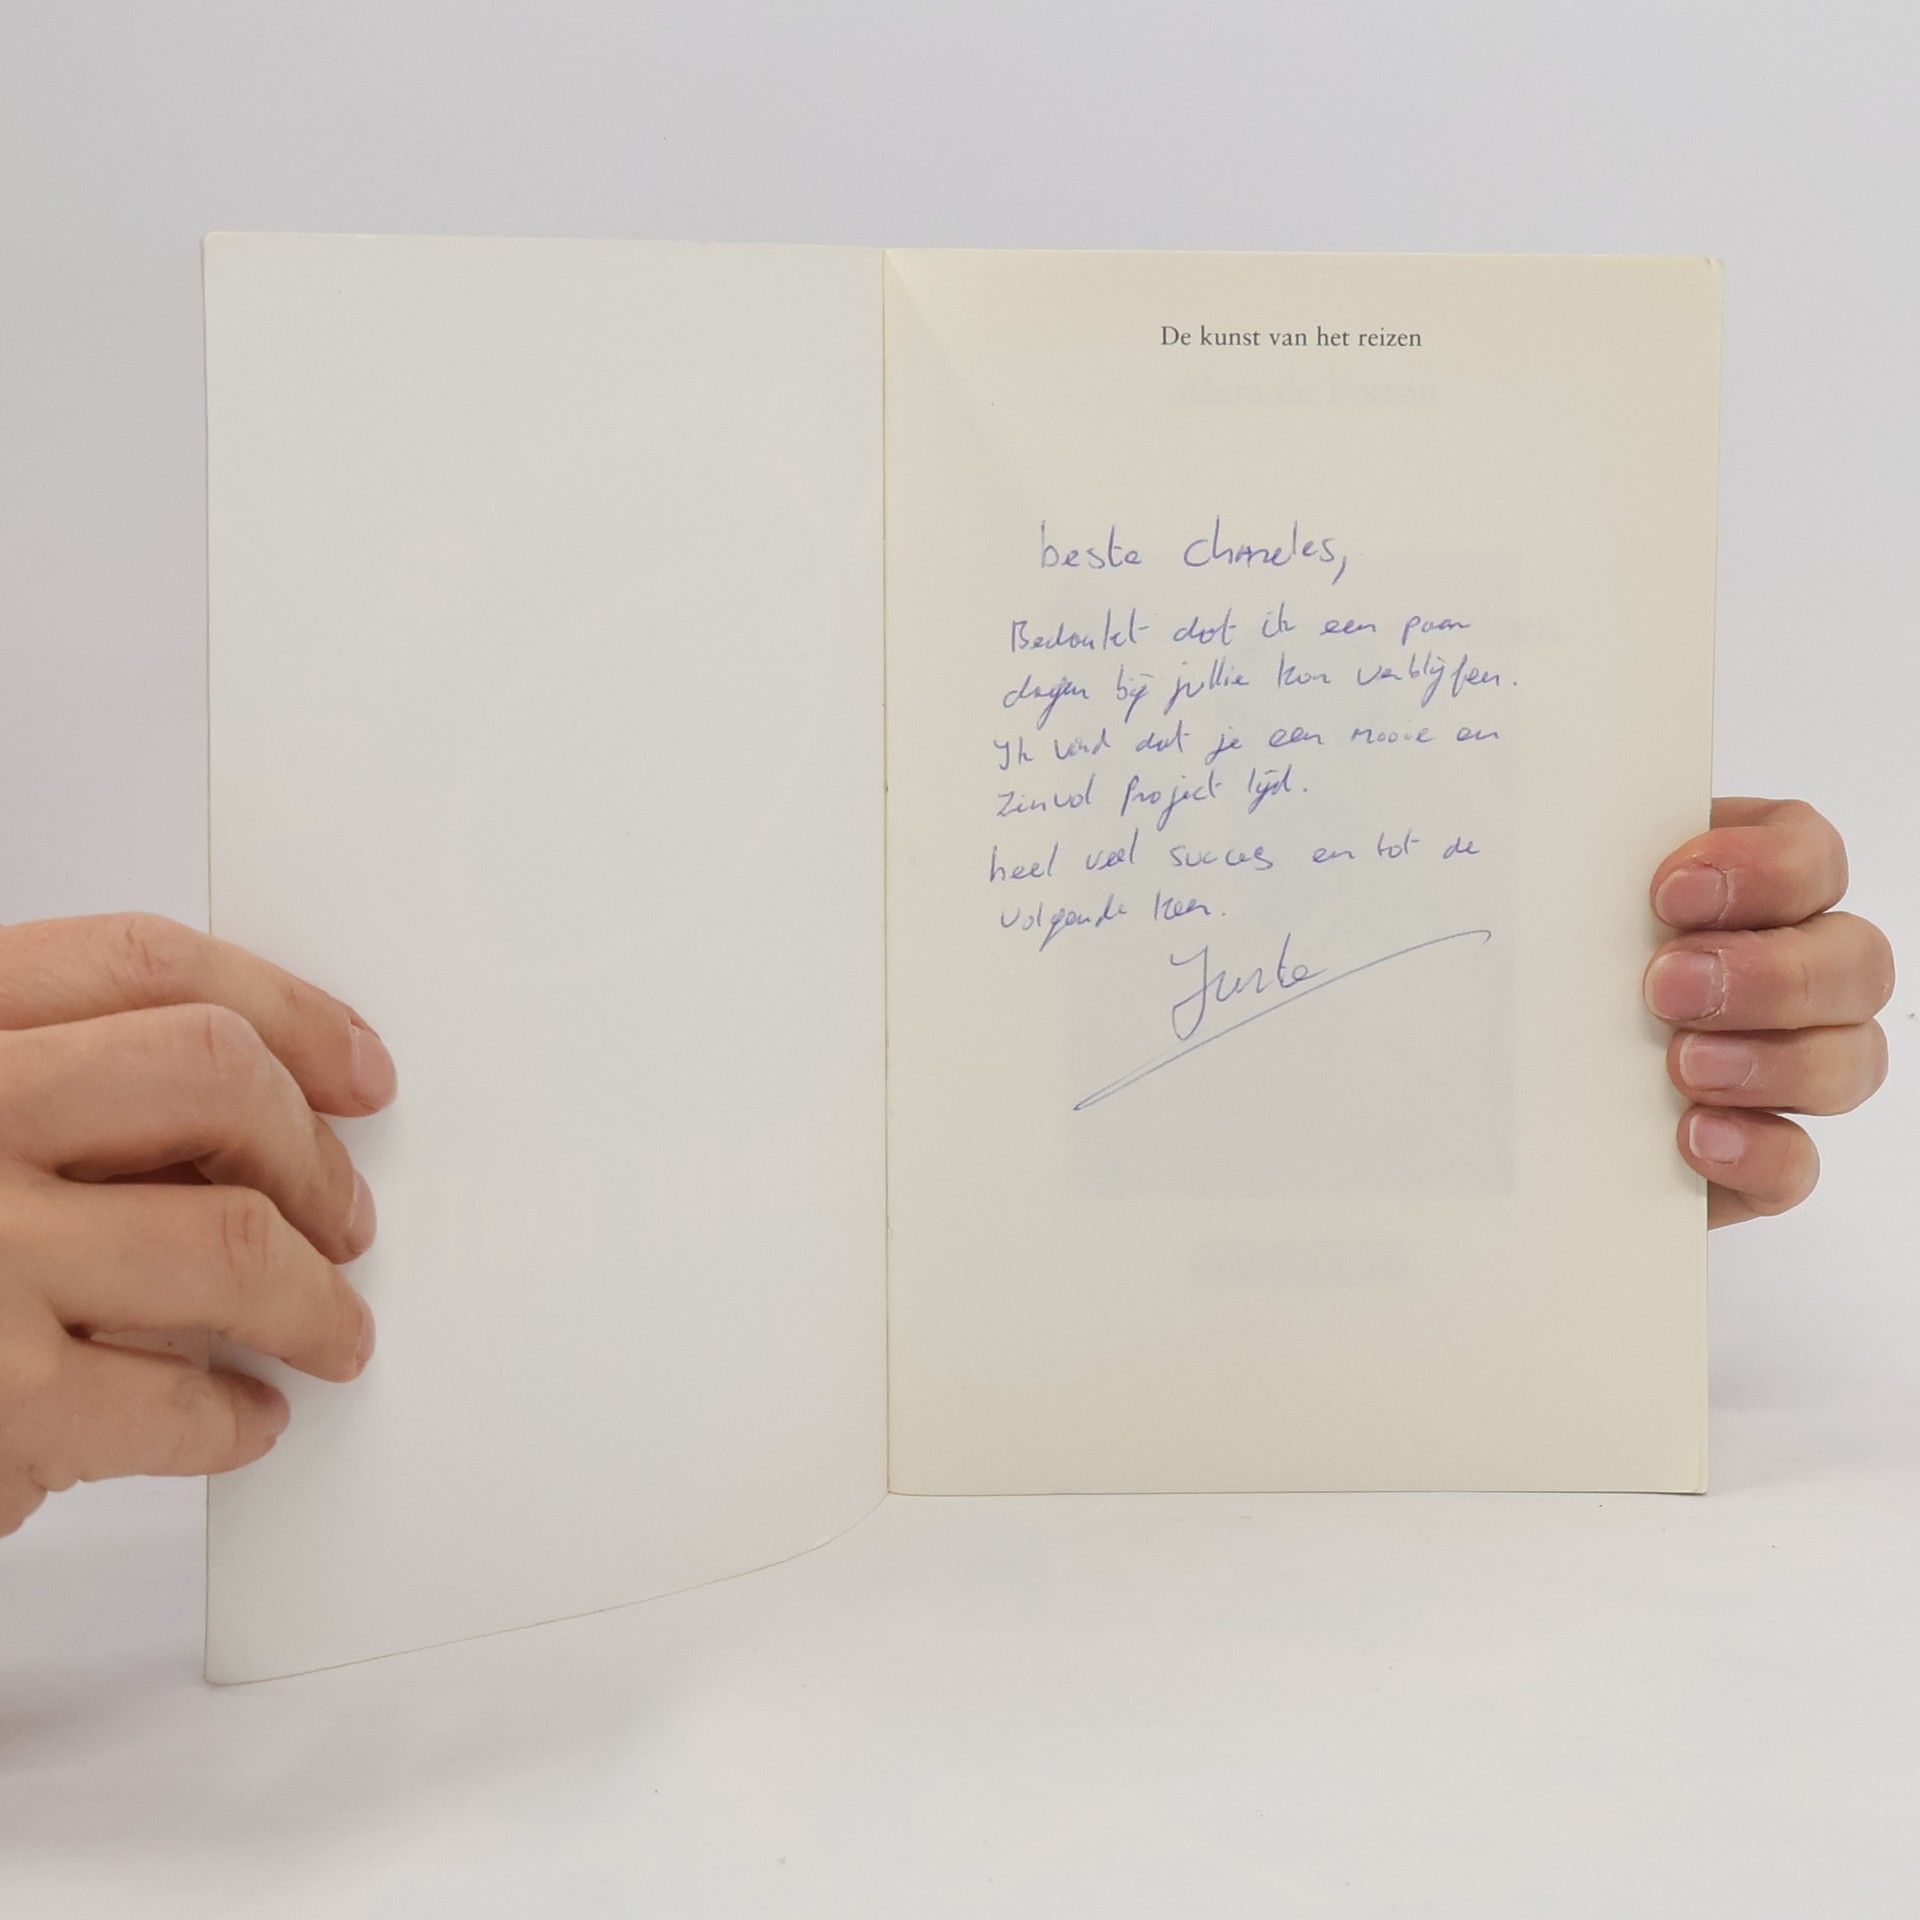 De kunst van het reizen
Alain de Botton
beste Charles,
Bedankt dat ik een paar
dagen bij jullie kon verblijfen.
Ik vind dat je een mooie en
zinvol project lijd.
heel veel succes en tot de
volgende keer.